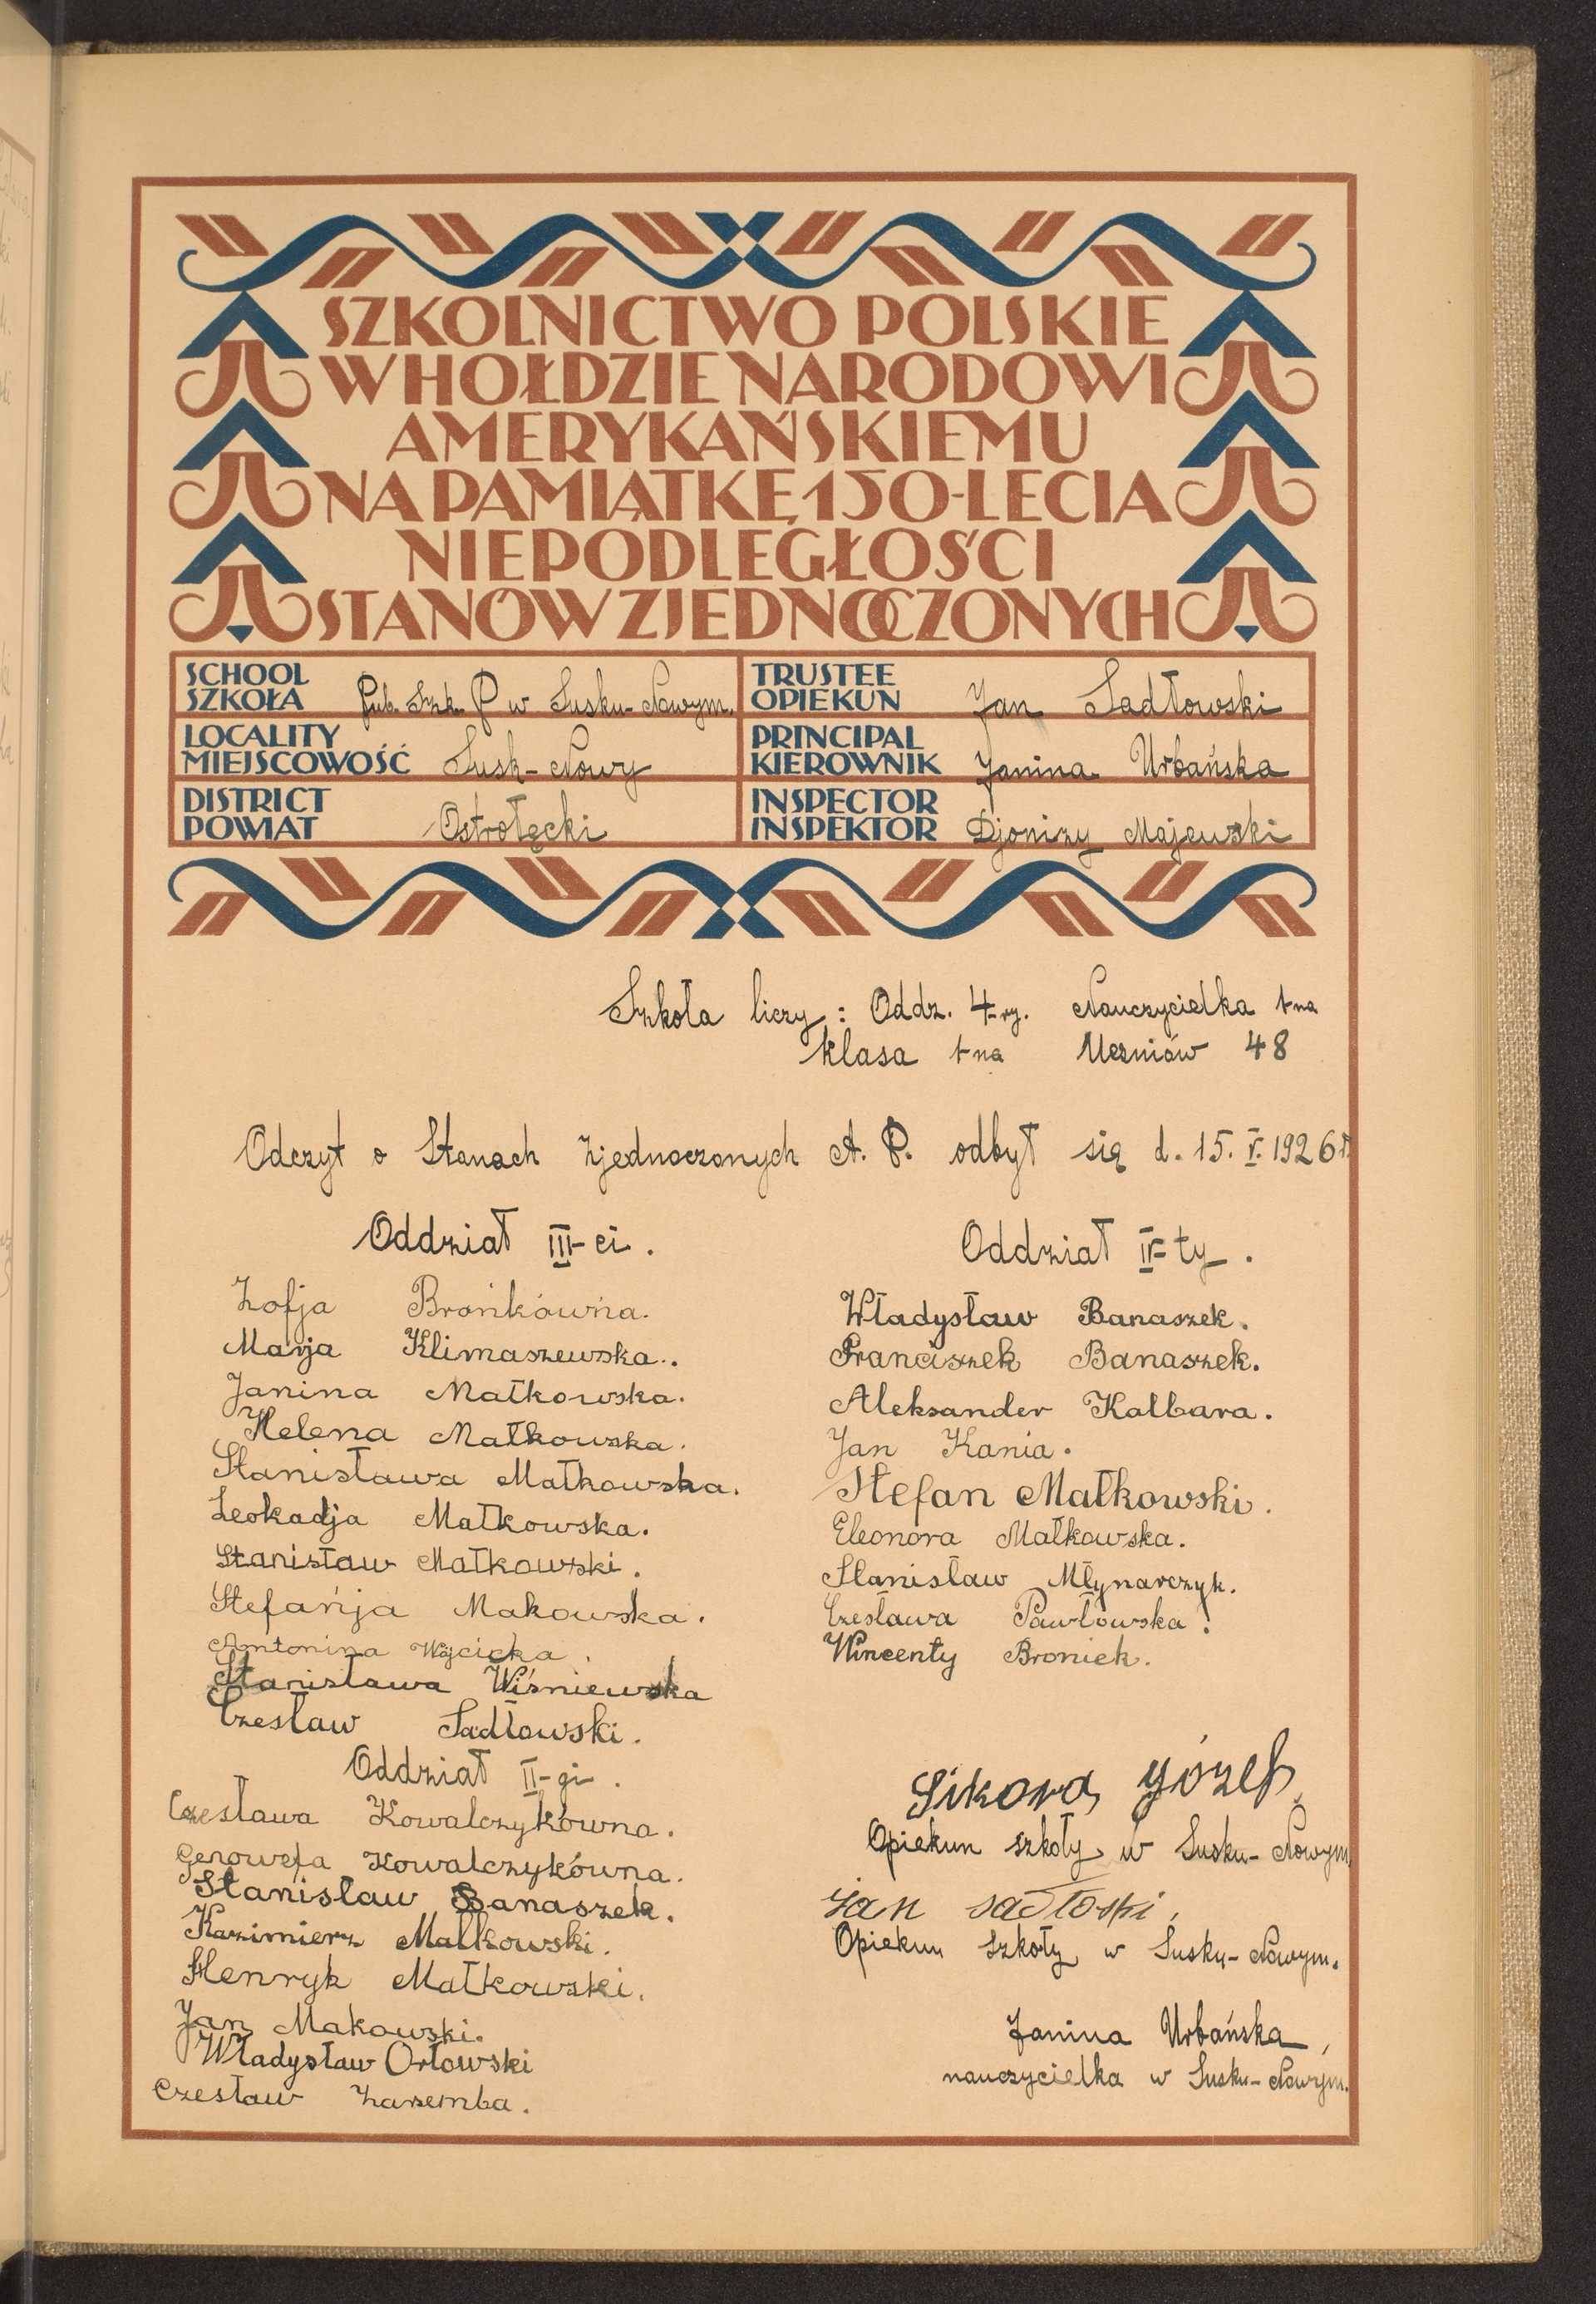 SZKOLNICTWO POLSKIE
W HOŁDZIE NARODOWI
AMERYKAŃSKIEMU
NA PAMIĄTKĘ 150-LECIA
NIEPODLEGŁOŚCI
STANÓW ZJEDNOCZONYCH
SCHOOL
SZKOŁA Pub. Szk. P w Susku-Nowym.
LOCALITY
MIEJSCOWOŚĆ Susk-Nowy
DISTRICT
POWIAT Ostrołęcki
TRUSTEE
OPIEKUN Jan Sadłowski
PRINCIPAL
KIEROWNIK Janina Urbańska
INSPECTOR
INSPEKTOR Djonizy Majewski
Szkoła liczy: Oddz. 4-ry. Nauczycielka 1-na
klasa 1-na Uczniów 48
Odczyt o Stanach Zjednoczonych A. P. odbył się d. 15. V. 1926 r.
Oddział III-ci.
Zofja Brońkówna.
Marja Klimaszewska.
Janina Małkowska.
Helena Małkowska.
Stanisława Małkowska.
Leokadja Małkowska.
Stanisław Małkowski.
Stefańja Makowska.
Antonina Wójcicka.
Stanisława Wiśniewska
Czesław Sadłowski.
Oddział II-gi.
Czesława Kowalczykówna.
Genowefa Kowalczykówna.
Stanisław Banaszek.
Kazimierz Małkowski.
Henryk Małkowski.
Jan Makowski.
Władysław Orłowski
Czesław Zaremba.
Oddział IV-ty.
Władysław Banaszek.
Franciszek Banaszek.
Aleksander Kalbara.
Jan Kania.
Stefan Małkowski.
Eleonora Małkowska.
Stanisław Młynarczyk.
Czesława Pawłowska!
Wincenty Broniek.
Sikora Józef,
Opiekun szkoły w Susku-Nowym.
jan sadłoski,
Opiekun Szkoły w Susku-Nowym.
Janina Urbańska,
nauczycielka w Susku-Nowym.